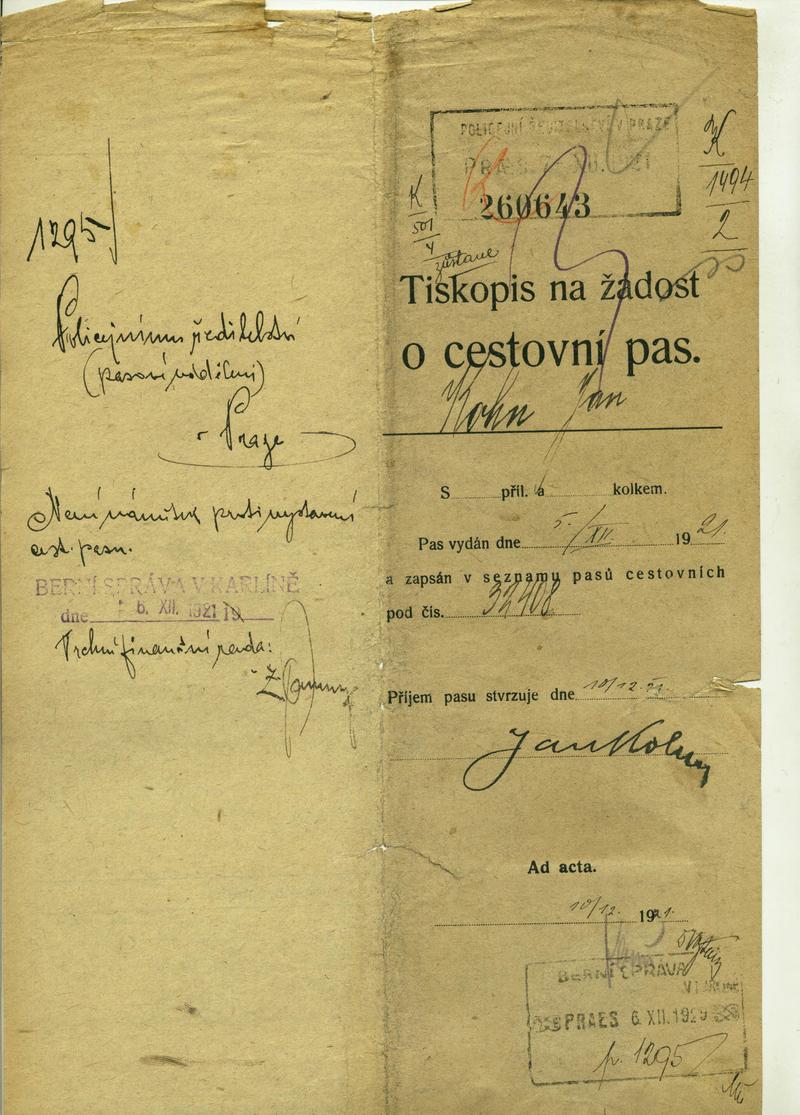 1295
Policejnímu ředitelství
(pasové oddělení)
Praze
Není námitek proti vystavení
cest. pasu.
BERNÍ SPRÁVA V KARLÍNĚ
dne 6. XII. 1921 19
Vrchní finanční rada:
POLICEJNÍ ŘEDITELSTVÍ V PRAZE
PRAES XII. 1921
260643
K
501
4
zůstane
K
1494
2
Tiskopis na žádost
o cestovní pas.
Kohn Jan
S příl. a kolkem.
Pas vydán dne 5./XII. 1921.
a zapsán v seznamu pasů cestovních
pod čís. 32408
Příjem pasu stvrzuje dne 10/12. 21.
Jan Kohn
Ad acta.
10/12. 1921.
BERNÍ SPRÁVA
V KARLÍNĚ
PRAES 6. XII. 192
p. 1295